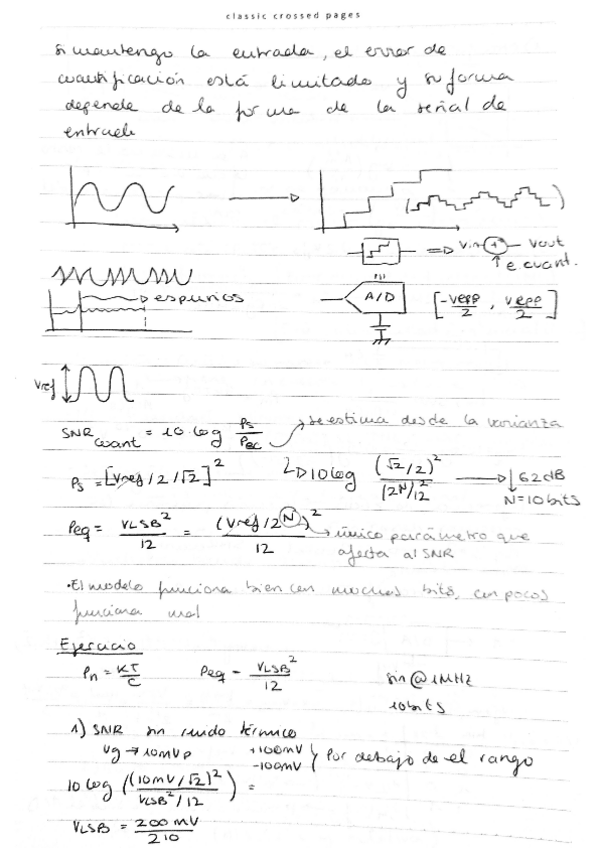 classic crossed pages
si mantengo la entrada, el error de
cuantificación está limitado y su forma
depende de la forma de la señal de
entrada
Vin + Vout
e cuant.
espurios
A/D [-Vepp/2 , Vepp/2]
Vref
SNRcuant = 10·log Ps/Pec → se estima desde la varianza
Ps = [Vref/2/√2]² → 10log (√2/2)²/(2N/12)² → 62dB
N=10bits
Peq = VLSB²/12 = (Vref/2N)²/12 → único parámetro que
afecta al SNR
·El modelo funciona bien con muchos bits, con pocos
funciona mal
Ejercicio
Pn = KT/C Peq = VLSB²/12 sin@1MHz
10bits
1) SNR sin ruido térmico
Vg → 10mVp +100mV
-100mV } Por debajo de el rango
10 log ((10mV/√2)²/VLSB²/12) =
VLSB = 200 mV/210